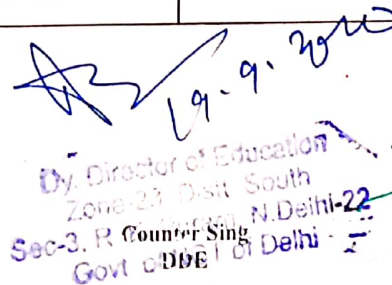 19.9.2010
Dy. Director of Education
Zone-23 Distt South
Sec-3, R. N.Delhi-22
Counter Sing
Govt of Delhi
DDE